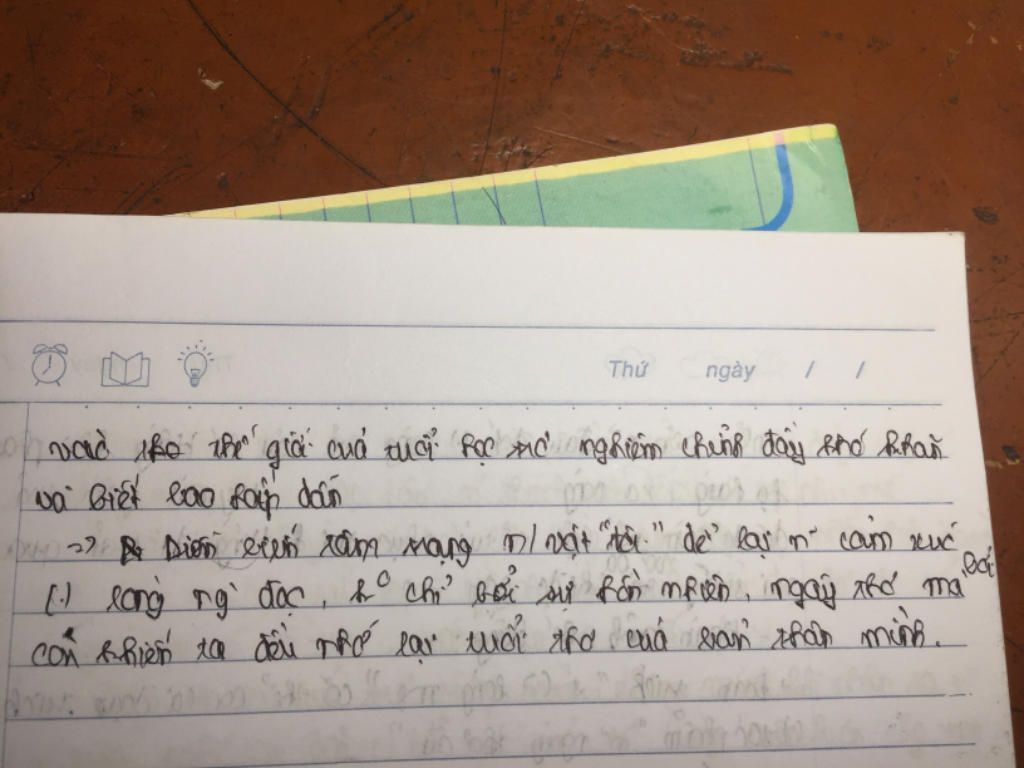 Thứ ngày / /
vào thế giới của tuổi học trò nghiêm chỉnh đầy khó khăn
và biết bao hấp dẫn
=> Diễn biến tâm trạng n/vật "tôi" để lại n~ cảm xúc
(.) lòng ng` đọc, k° chỉ bởi sự hồn nhiên, ngây thơ mà
còn khiến ta đều nhớ lại tuổi thơ của bản thân mình.